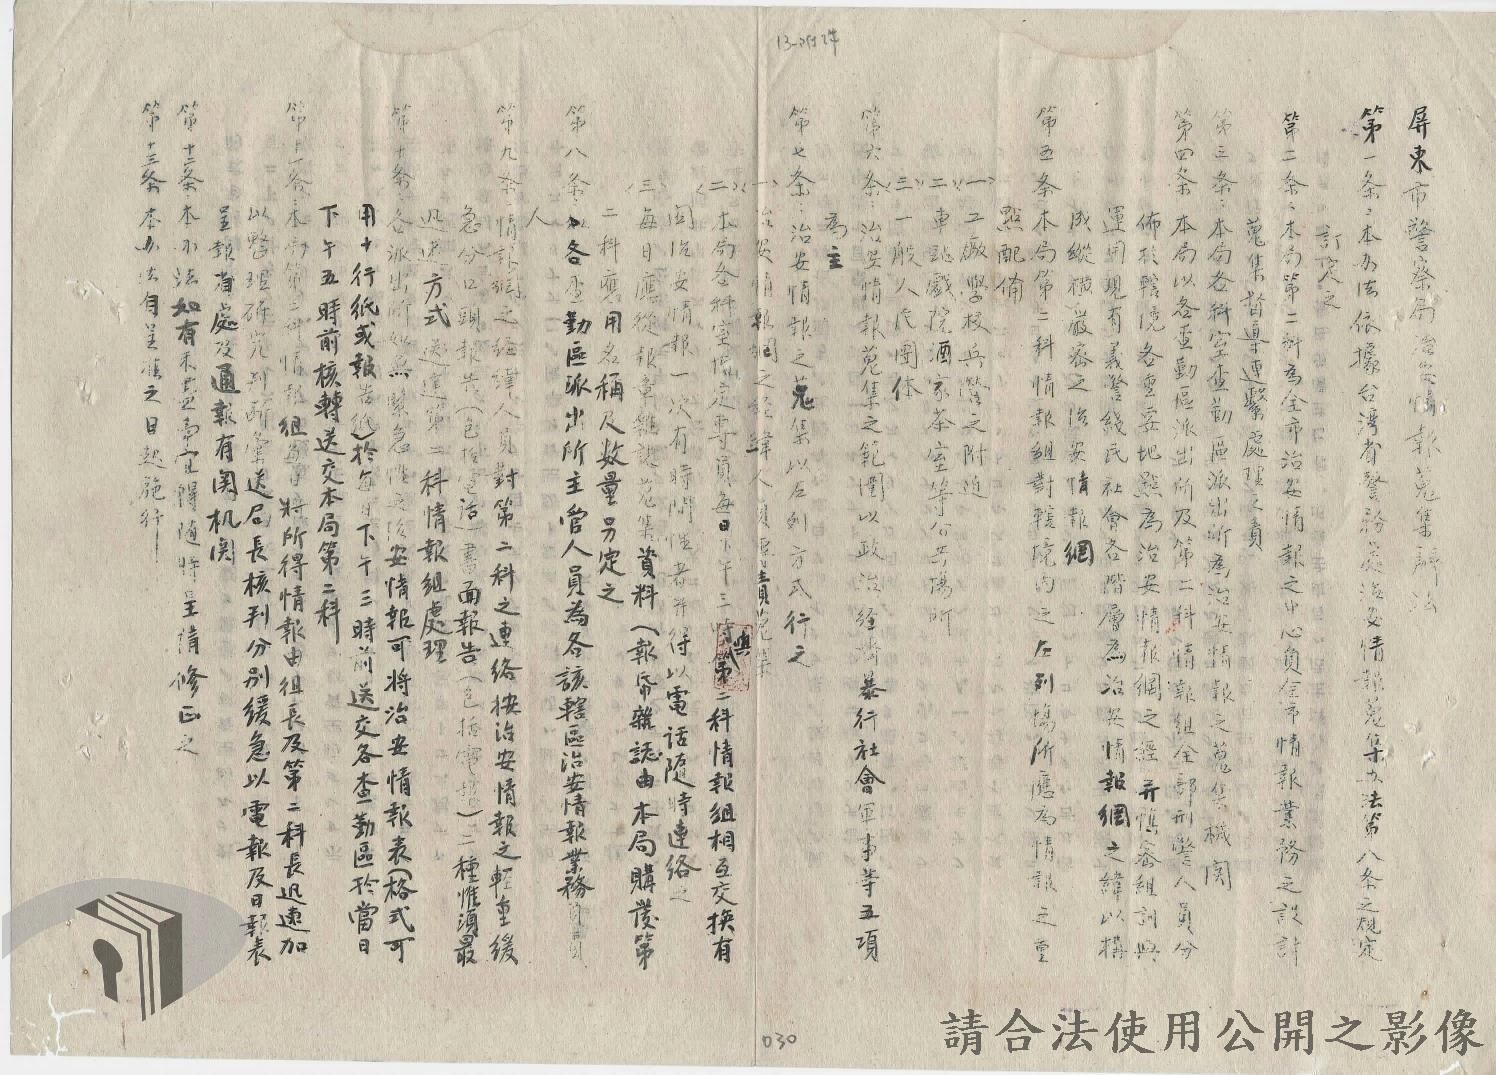 13-附件
屏東市警察局治安情報蒐集辦法
第一条：本办法依據台湾省警務處治安情報蒐集办法第八条之規定
訂定之
第二条：本局第二科為全市治安情報之中心負全市情報業務之設計
蒐集督導連繫處理之責
第三条：本局各科室查勤區派出所為治安情報之蒐集機関
第四条 本局以各查勤區派出所及第二科情報組全部刑警人員分
佈於轄境各重要地點為治安情報網之經并慎審組訓與
運用現有義警綫民社會各階層為治安情報網之緯以構
成縱橫嚴密之治安情報網
第五条：本局第二科情報組對轄境内之左列場所應為情報之重
點配佈
(一)工廠學校兵營之附近
(二)車站戲院酒家茶室等公共場所
(三)一般人民團体
第六条：治安情報蒐集之範圍以政治經濟暴行社會軍事等五項
為主
第七条：治安情報之蒐集以左列方式行之
(一)治安情報網之經緯人員負責蒐集
(二)本局各科室指定專員每日下午三時與第二科情報組相互交換有
関治安情報一次有時間性者并得以電話隨時連絡之
(三)每日應從報章雜誌蒐集資料(報帋雜誌由本局購發第
二科應用名稱及数量另定之
第八条：各查勤區派出所主管人員為各該轄區治安情報業務
人
第九条：情報網之經緯人員對第二科之連絡按治安情報之輕重緩
急分口頭報告(包括電話)書面報告(包括密)二種惟須最
迅速方式送達第二科情報組處理
第十条：各派出所如無緊急性之治安情報可將治安情報表(格式可
用十行紙或報告紙)於每日下午三時前送交各查勤區於當日
下午五時前核轉送交本局第二科
第十一条：本局第二科情報組每日將所得情報由組長及第二科長迅速加
以整理研究判斷彙送局長核判分別緩急以電報及日報表
呈報省處及通報有関机関
第十二条 本办法如有未盡事宜得随時呈請修正之
第十三条 本办法自呈准之日起施行
030
請合法使用公開之影像